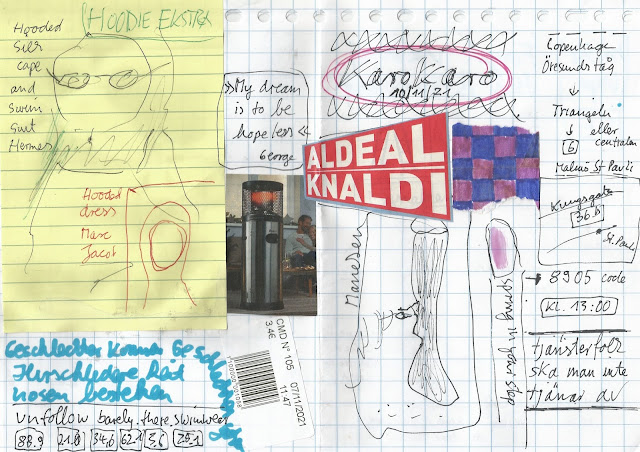 HOODIE EKSTRA
Hooded
silk
cape
and
swim
suit
Hermes
Hooded
dress
Marc
Jacob
»My dream
is to be
hopeless«
George
KaroKaro
10/11/21
ALDEAL
KNALDI
CMD N° 105
34E
07/11/2021
11:47
Manesen
spring in your step
Copenhage
Öresundståg
Triangeln
eller
6
centralen
Malmö St Pauli
Kungsgata
36 B
St. Pauli
8905 code
KL. 13:00
tjänstefolk
ska man inte
tjänar av
Geschlechter können
nosen bestehen
unfollow barely.there.swimwear
88.9 21.8 34.6 62.1 3,6 25.1